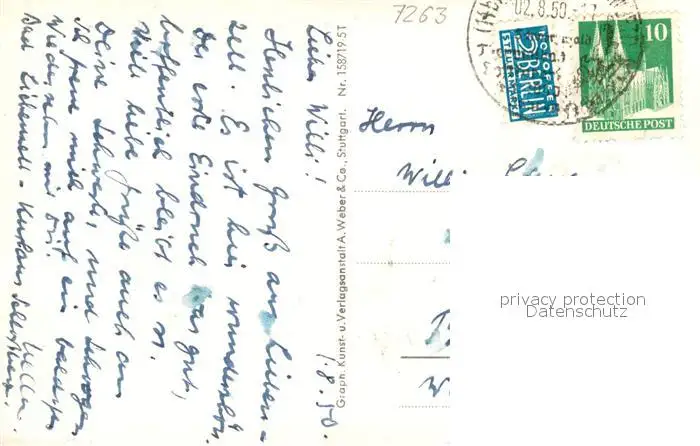 7263
02.8.50
NOTOPFER
2 BERLIN
STEUERMARKE
10
DEUTSCHE POST
Herrn
Willi
1.8.50.
Lieber Willi!
Herzlichen Gruß aus Lieben-
zell. Es ist hier wunderschön.
Der erste Eindruck war gut,
hoffentlich bleibt es so.
Viel liebe Grüße auch an
Deine Schwester, und Schwager
Ich freue mich auf ein baldiges
Wiedersehen mit Dir!
Hella
Bad Liebenzell - Kurhaus
Graph. Kunst- u. Verlagsanstalt A. Weber & Co., Stuttgart. Nr. 158719.5T
privacy protection
Datenschutz